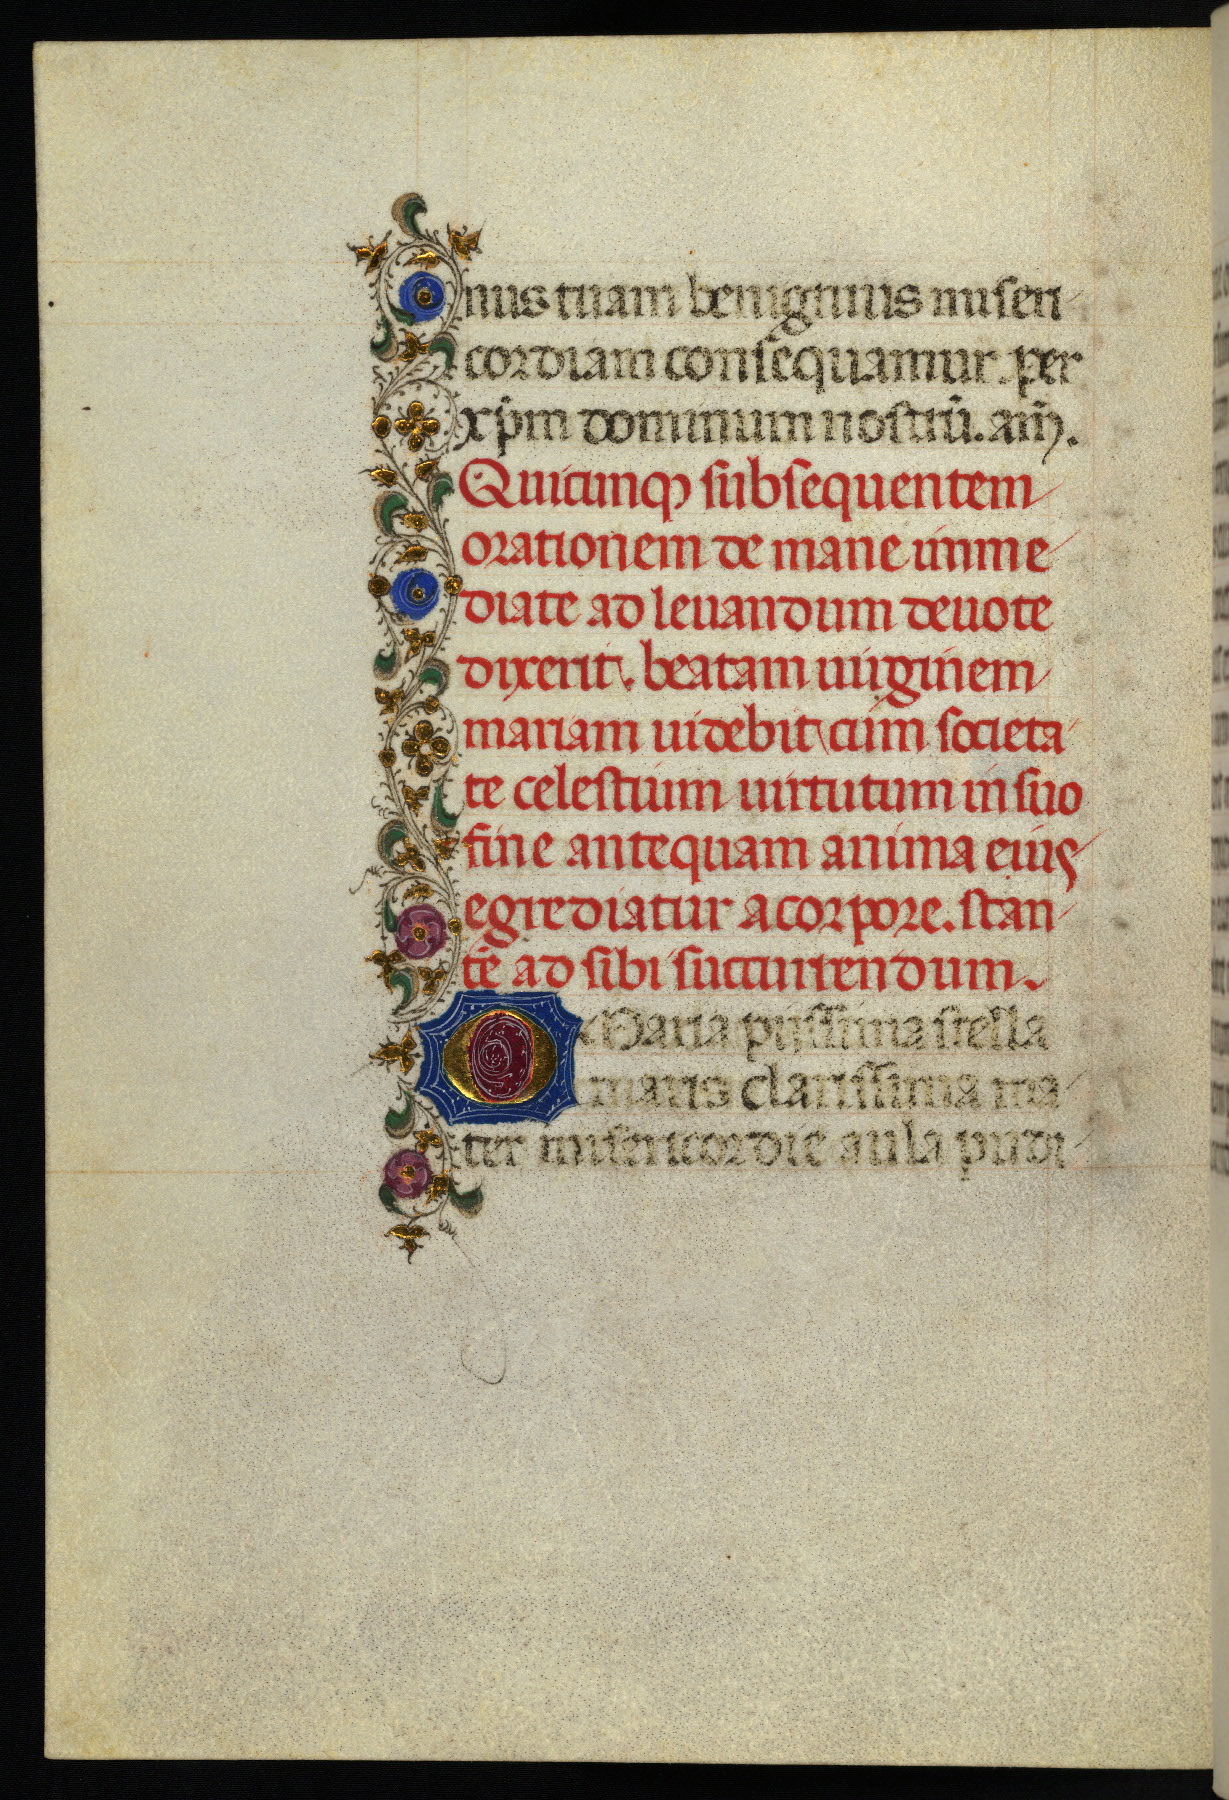 nus tuam benignius miseri
cordiam consequamur. per
xp̄m dominum nostrū. am̄.
Quicunqꝫ subsequentem
orationem de mane imme
diate ad leuandum deuote
dixerit. beatam uirginem
mariam uidebit cum societa
te celestium uirtutum in suo
fine antequam anima eius
egrediatur a corpore. stan
tē ad sibi succurrendum.
O Maria piissima stella
maris clarissima ma
ter misericordie aula pudi